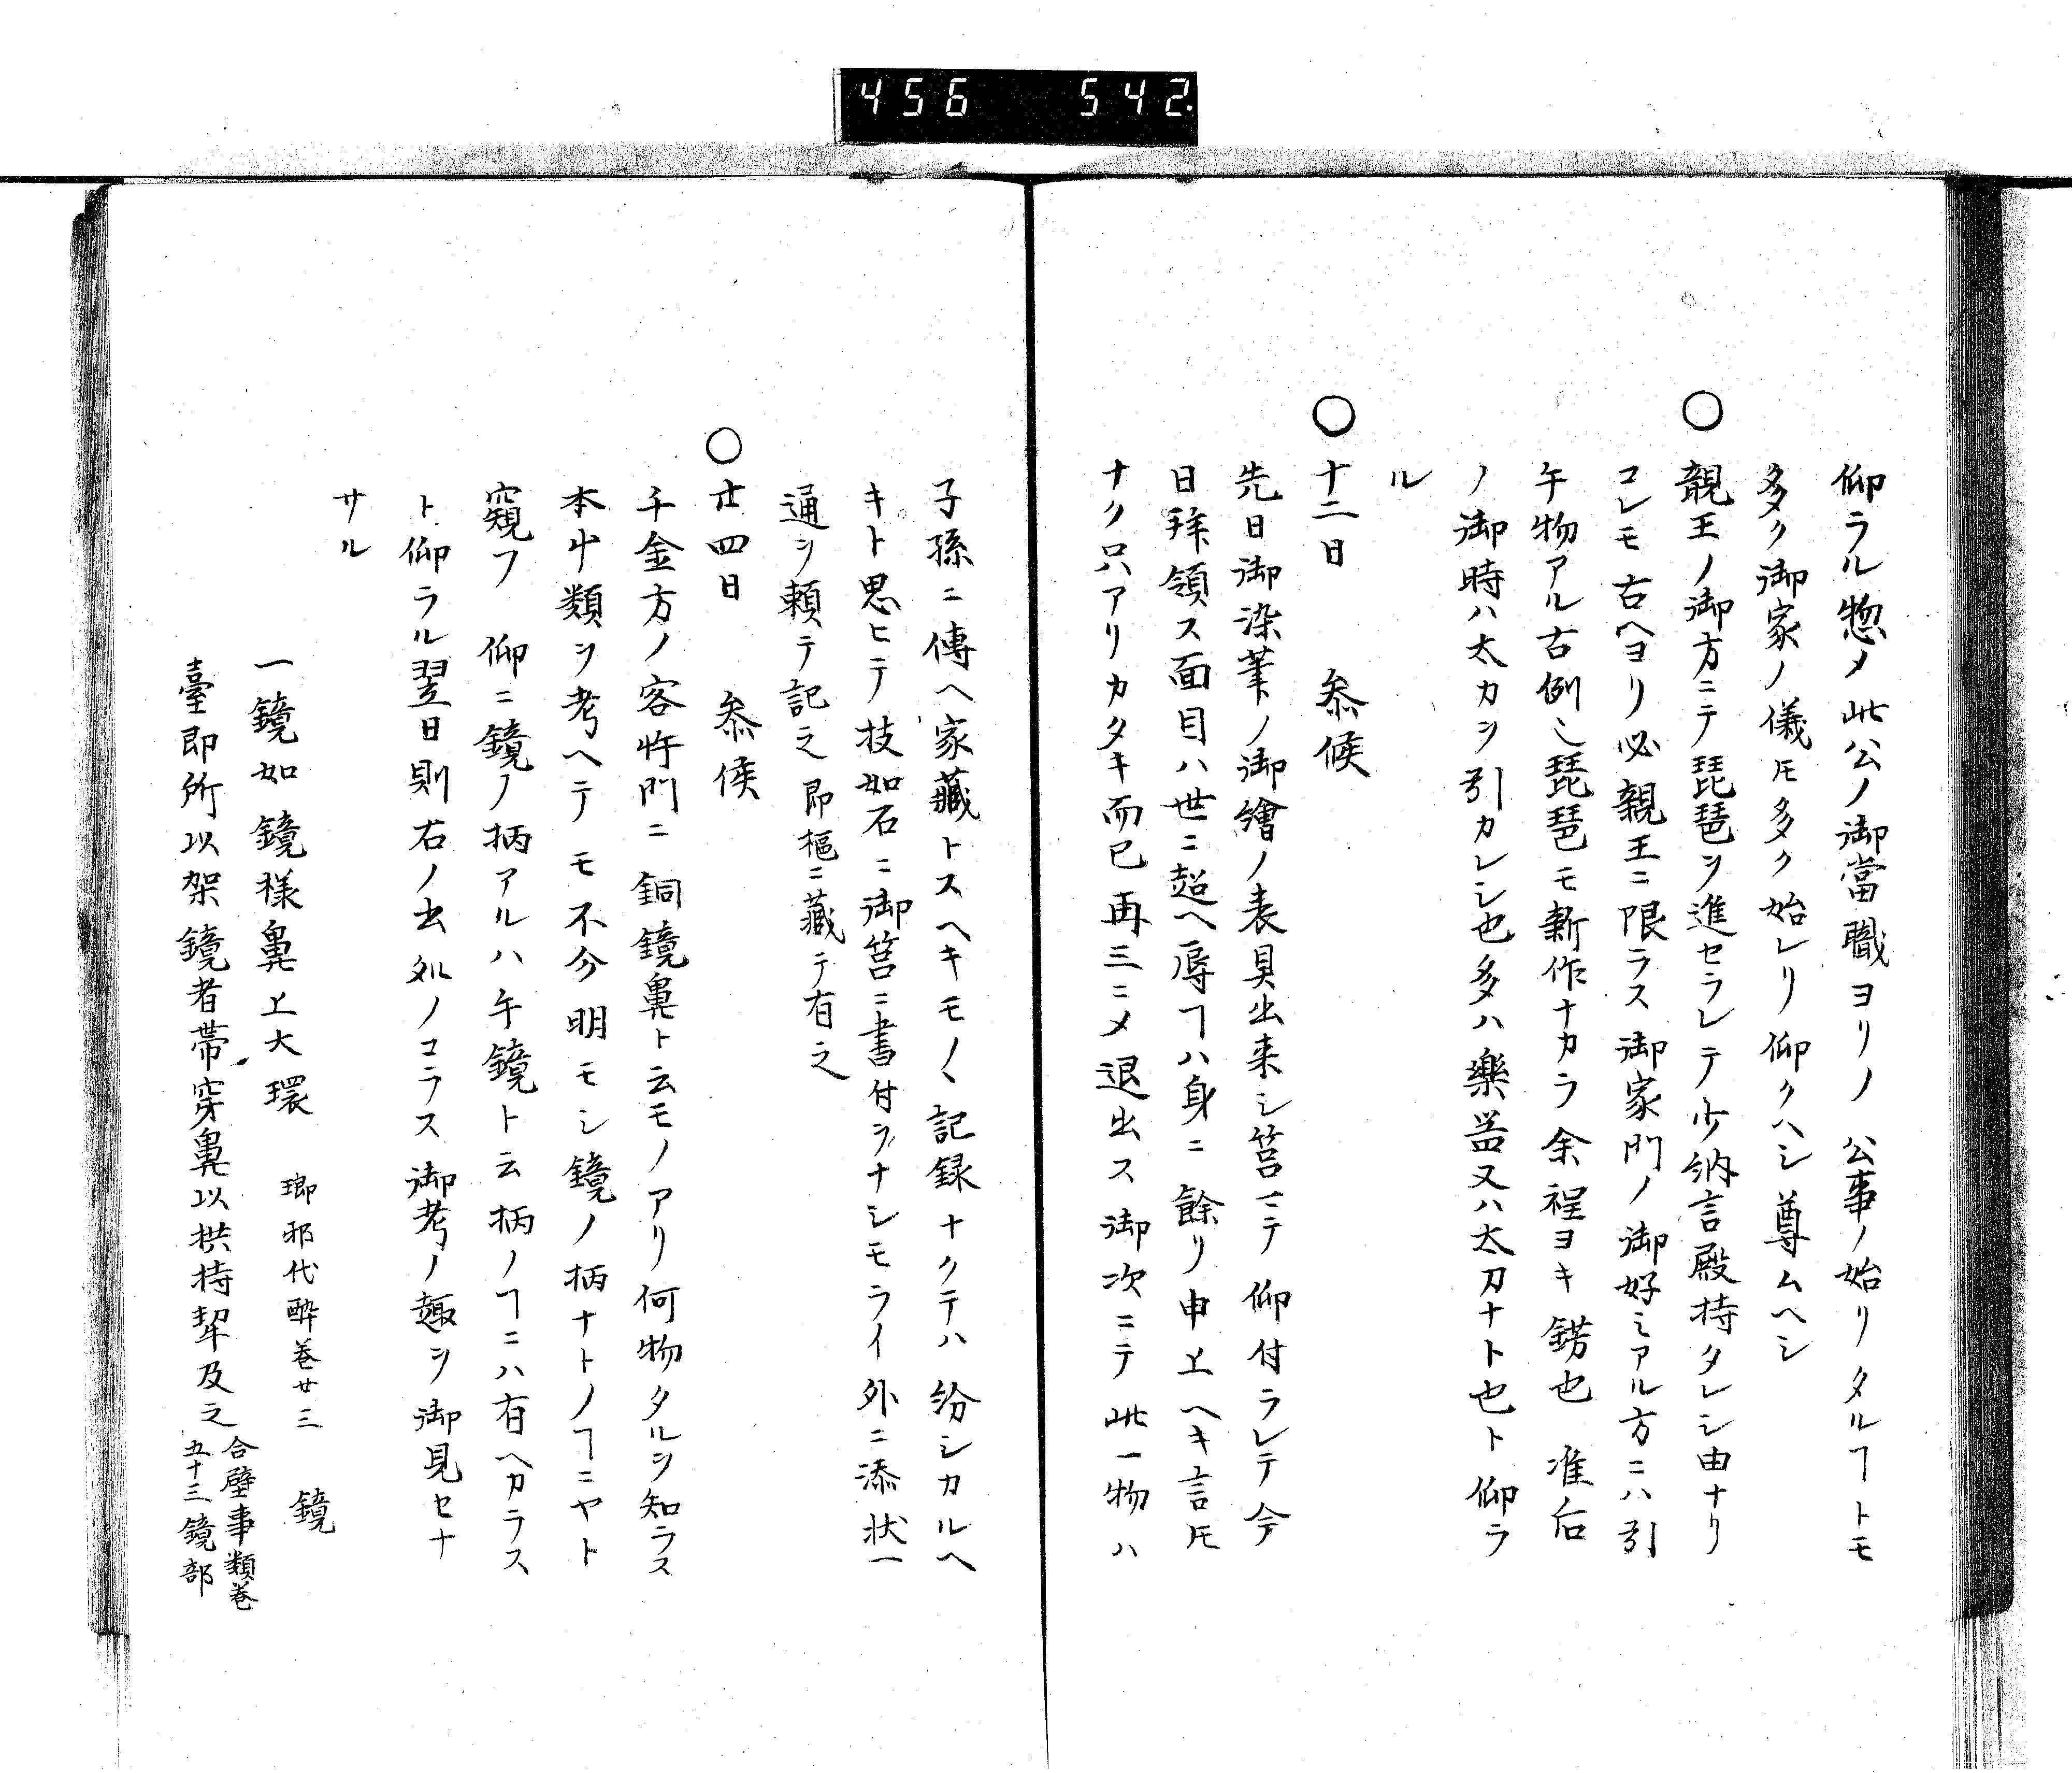 456 542
仰ラル惣〆此公ノ御當職ヨリノ公事ノ始リタルヿトモ
多ク御家ノ儀𪜈多ク始レリ仰クヘシ尊ムヘシ
○親王ノ御方ニテ琵琶ヲ進セラレテ少納言殿持タレシ由ナリ
コレモ古ヘヨリ必親王ニ限ラス御家門ノ御好ミアル方ニハ引
午物アル古例也琵琶モ新作ナカラ余程ヨキ錺也 准后
ノ御時ハ太カヲ引カレシ也多ハ樂器又ハ太刀ナト也ト仰ラ
ル
○十二日 参候
先日御染筆ノ御繪ノ表具出来シ筥ニテ仰付ラレテ今
日拜領ス面目ハ世ニ超ヘ辱ヿハ身ニ餘リ申上ヘキ言𪜈
ナク只ハアリカタキ而已再三ニ〆退出ス御次ニテ此一物ハ
子孫ニ傳ヘ家藏トスヘキモノ、記録ナクテハ紛シカルヘ
キト思ヒテ技如石ニ御筥ニ書付ヲナシモライ外ニ添状一
通ヲ頼テ記之即樞ニ藏テ有之
○廿四日 参候
千金方ノ客忤門ニ銅鏡鼻ト云モノアリ何物タルヲ知ラス
本艸類ヲ考ヘテモ不分明モシ鏡ノ柄ナトノヿニヤト
窺フ 仰ニ鏡ノ柄アルハ午鏡ト云柄ノヿニハ有ヘカラス
ト仰ラル翌日則右ノ出処ノコラス御考ノ趣ヲ御見セナ
サル
一鏡如鏡樣鼻上大環 瑯邪代酔巻廿三 鏡
臺即所以架鏡者帯穿鼻以拱持挈及之 合璧事類巻
五十三鏡部